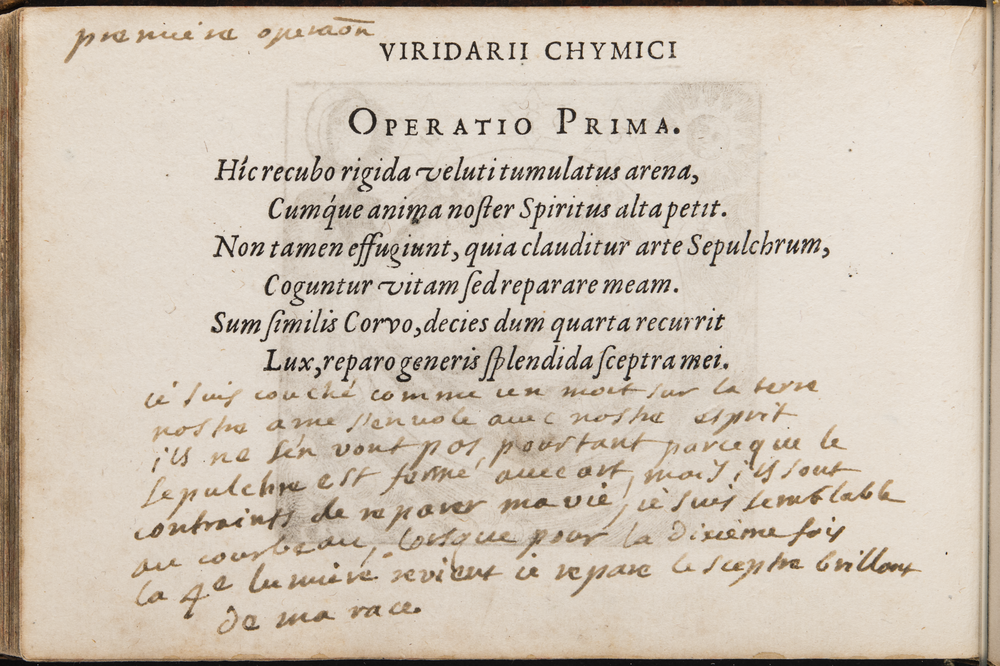 premiere operãon
VIRIDARII CHYMICI
OPERATIO PRIMA.
Hîc recubo rigida veluti tumulatus arena,
Cumq́ue anima noſter Spiritus alta petit.
Non tamen effugiunt, quia clauditur arte Sepulchrum,
Coguntur vitam ſed reparare meam.
Sum ſimilis Corvo, decies dum quarta recurrit
Lux, reparo generis ſplendida ſceptra mei.
ie suis couché comme un mort sur la terre
nostre ame s'envole avec nostre esprit
ils ne s'en vont pas pourtant parceque le
sepulchre est fermé avec art, mais ils sont
contraints de reparer ma vie, ie suis semblable
au courbeau, lorsque pour la dixieme fois
la 4e lumiere revient ie repare le sceptre brillant
de ma race.